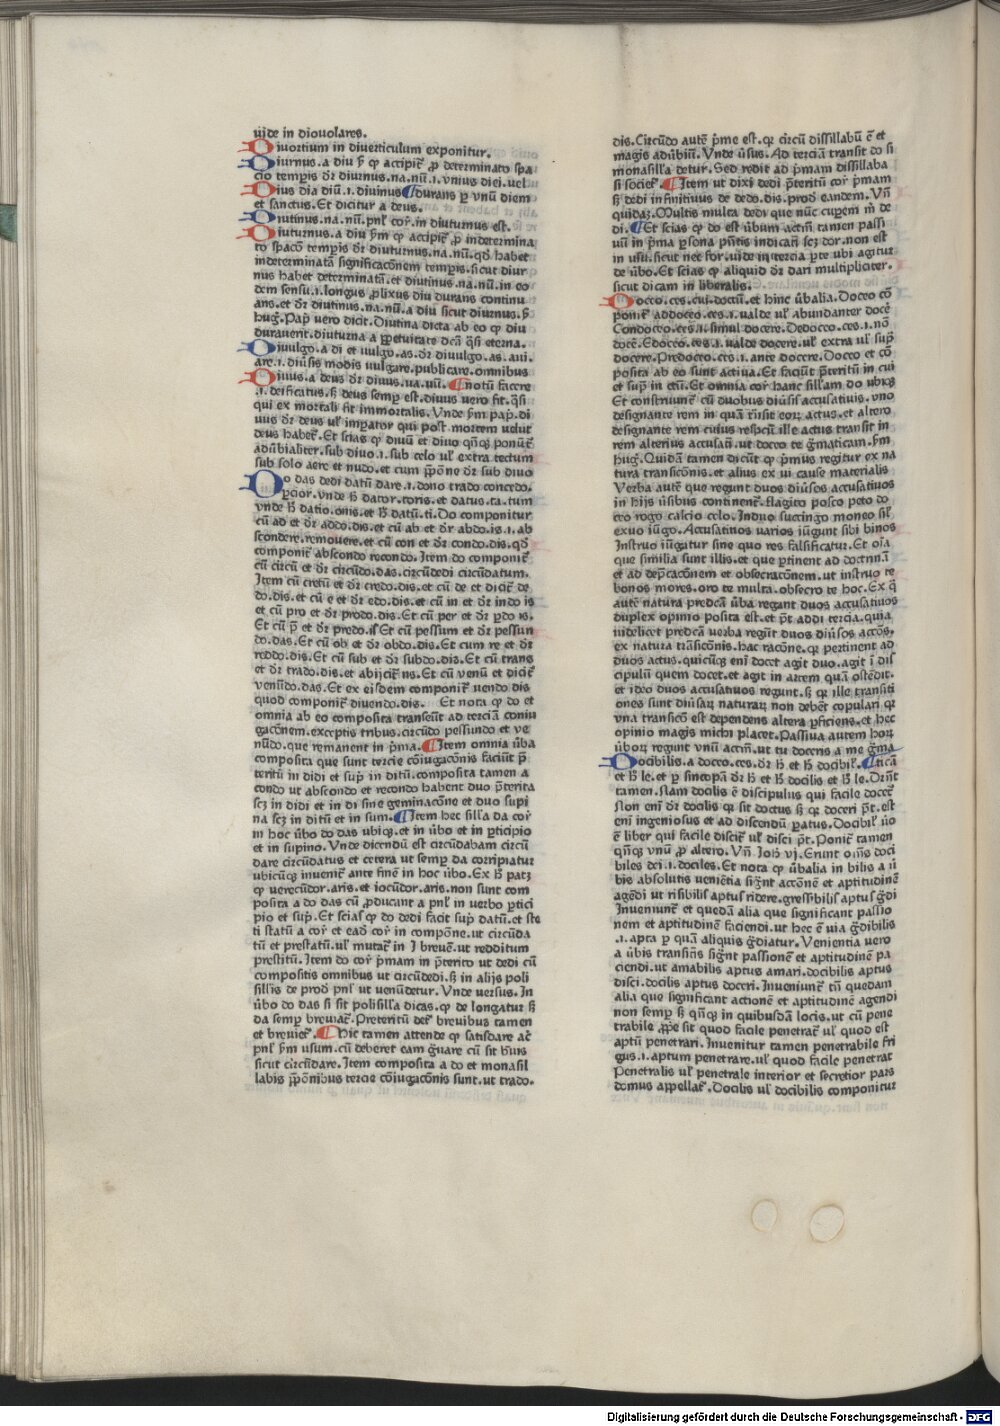 vide in diouolares.
Diuortium in diuerticulum exponitur.
Diurnus.a diu ẜm qp accipit᷑ ꝓ determinato spa
cio temꝑis d᷑r diurnus.na.nū.i.vnius diei.vel
Dius dia diū.i.diuinus ¶ durans ꝑ vnū diem
et sanctus. Et dicitur a deus.
Diutinus.na.nū.pnl᷑ cor᷑.in diuturnus est.
Diuturnus.a diu ẜm qp accipit᷑ ꝓ indetermina
to spacō temꝑis d᷑r diuturnus.na.nū.qd̄ habet
indeterminatā significacōnem temꝑis.sicut diur
nus habet determinatā.et diutinus.na.nū.in eo
dem sensu.i.longus ꝓlixus diu durans continu
ans.et d᷑r diutinus.na.nū.a diu sicut diurnus.ẜm
hug᷑. Pap᷑ vero dicit. Diutina dicta ab eo qp diu
durauerit.diuturna a ꝑpetuitate dcā q̄si eterna.
Diuulgo.a di et vulgo.as.d᷑r diuulgo.as.aui.
are.i.diu᷑sis modis vulgare.publicare.omnibus
Diuus.a deus d᷑r diuus.ua.uū. ¶ notū facere
.i.deificatus.s̄ deus semp est.diuus vero fit.q̄si
qui ex mortali fit immortalis. Vnde ẜm pap᷑.di
uus d᷑r deus ul᷑ impator qui post mortem velut
deus habet᷑. Et scias qp diuū et diuo qn̄qꝫ ponūt᷑
adūbialiter.sub diuo.i.sub celo ul᷑ extra tectum
sub solo aere et nudo.et cum p̄pōne d᷑r sub diuo
Do das dedi datū dare.i.dono trado concedo.
ꝑcior.vnde h̄ dator.toris.et datus.ta.tum
vnde h̄ datio.onis.et h̄ datū.ti. Do componitur
cū ad et d᷑r addo.dis.et cū ab et d᷑r abdo.is.i.ab
scondere.remouere.et cū con et d᷑r condo.dis.qd̄
componit᷑ abscondo recondo. Item do componit᷑
cū circū et d᷑r circūdo.das.circūdedi circūdatum.
Item cū cretū et d᷑r credo.dis.et cū de et dicit᷑ de
do.dis.et cū e et d᷑r edo.dis.et cū in et d᷑r indo is
et cū pro et d᷑r prodo.dis. Et cū per et d᷑r ꝑdo is.
Et cū p̄ et d᷑r predo.is̄ Et cū pessum et d᷑r pessun
do.das. Et cū ob et d᷑r obdo.dis. Et cum re et d᷑r
reddo.dis. Et cū sub et d᷑r subdo.dis. Et cū trans
et d᷑r trado.dis.et abijcit᷑ ns. Et cū venū et dicit᷑
venūdo.das. Et ex eisdem componit᷑ uendo dis
quod componit᷑ diuendo.dis. Et nota qp do et
omnia ab eo composita transeūt ad terciā coniu
gacōnem.exceptis tribus.circūdo pessundo et ve
nūdo.que remanent in p̄ma. ¶ Item omnia ūba
composita que sunt tercie cōiugacōnis faciūt p̄
teritū in didi et sup᷑ in ditū.composita tamen a
condo ut abscondo et recondo habent duo p̄terita
scꝫ in didi et in di sine geminacōne et duo supi
na scꝫ in ditū et in sum. ¶ Item hec silla da cor᷑
in hoc ūbo do das ubicqꝫ.et in ūbo et in ꝑticipio
et in supino. Vnde dicendū est circūdabam circū
dare circūdatus et cetera ut semp da corripiatur
ubicūqꝫ inuenit᷑ ante finē in hoc ūbo. Ex h̄ patꝫ
qp verecūdor.aris.et iocūdor.aris.non sunt com
posita a do das cū ꝓducant a pnl᷑ in verbo ꝑtici
pio et sup᷑. Et scias qp do dedi facit sup᷑ datū.et ste
ti statū a cor᷑ et eadē cor᷑ in compōne.ut circūda
tū et prestatū.ul᷑ mutat᷑ in I breuē.ut redditum
prestitū. Item do cor᷑ p̄mam in p̄terito ut dedi cū
compositis omnibus ut circūdedi.s̄ in alijs poli
sillis de prod᷑ pnl᷑ ut venūdetur. Vnde versus. In
ūbo do das si sit polisilla dicas.qp de longatur s̄
da semp breuiat᷑. Preteritū det᷑ breuibus tamen
et breuiet᷑. ¶ Hic tamen attende qp satisdare ac᷑
pnl᷑ ẜm usum.cū deberet eam g᷑uare cū sit b᷑uis
sicut circūdare. Item composita a do et monasil
labis p̄pōnibus tercie cōiugacōnis sunt.ut trado.
dis. Circūdo autē p̄me est.qꝛ circū dissillabū ē et
magis adūbiū. Vnde ūsus. Ad terciā transit do si
monasilla detur. Sed redit ad p̄mam dissillaba
si societ᷑. ¶ Item ut dixi dedi p̄teritū cor᷑ p̄mam
s̄ dedi infinitiuus de dedo.dis.prod᷑ eandem. Vn̄
quidaꝫ. Multis multa dedi que nūc cuꝑem m᷑ de
di. ¶ Et scias qp do est ūbum actiū.tamen passi
uū in p̄ma ꝑsona pn̄tis indicati scꝫ dor.non est
in usu.sicut nec for.vide in tercia ꝑte ubi agitur
de ūbo. Et scias qp aliquid d᷑r dari multipliciter.
sicut dicam in liberalis.
Doceo.ces.cui.doctū.et hinc ūbalia. Doceo cō
ponit᷑ addoceo.ces.i.valde ul᷑ abundanter docē
Condoceo.ces.i.simul docere. Dedoceo.ces.i.nō
docē. Edoceo.ces.i.valde docere.ul᷑ extra ul᷑ sup᷑
docere. Predoceo.ces.i.ante docere. Doceo et cō
posita ab eo sunt actiua. Et faciūt p̄teritū in cui
et sup᷑ in ctū. Et omnia cor᷑ hanc sillam do ubiqꝫ
Et construunt᷑ cū duobus diu᷑sis accusatiuis.vno
designante rem in quā t᷑nsit eoꝝ actus.et altero
designante rem cuius respcū ille actus transit in
rem alterius accusati.ut doceo te g᷑maticam.ẜm
hug᷑. Quidā tamen dicūt qp p̄mus regitur ex na
tura transicōnis.et alius ex ui cause materialis
Verba autē que regunt duos diu᷑sos accusatiuos
in hijs ūsibus continent᷑. flagito posco peto do
ceo rogo calcio celo. Induo succingo moneo sil᷑
exuo iūgo. Accusatiuos varios iūgunt sibi binos
Instruo iūgitur sine quo res falsificatur. Et oīa
que similia sunt illis.et que ꝑtinent ad doctrinā
et ad dep᷑cacōnem et obsecracōnem.ut instruo te
bonos mores.oro te multa.obsecro te hoc. Ex q̄
autē natura predcā ūba regant duos accusatiuos
duplex opinio posita est.et p̄t addi tercia.quia
uidelicet predcā verba regūt duos diu᷑sos accōs.
ex natura trāsicōnis.hac racōne.qꝛ pertinent ad
duos actus.quicūqꝫ eni docet agit duo.agit ī dis
cipulū quem docet.et agit in artem quā ostēdit.
et ideo duos accusatiuos regunt.s̄ qꝛ ille transiti
ones sunt diu᷑saꝝ naturaꝝ non debēt copulari qꝛ
vna transicō est dependens altera ꝑficiens.et hec
opinio magis michi placet. Passiua autem hoꝝ
ūboꝝ regunt vnū accm̄.ut tu doceris a me g᷑ma
Docibilis.a doceo.ces.d᷑r h̄ et h̄ docibil᷑. ¶ ticā
et h̄ le.et ꝑ sincopā d᷑r h̄ et h̄ docilis et h̄ le. Dr̄nt
tamen. Nam docilis ē discipulus qui facile docet᷑
Non eni d᷑r docilis qꝛ sit doctus s̄ qꝛ doceri p̄t.est
eni ingeniosus et ad discendū ꝑatus. Docibil᷑ ūo
ē liber qui facile discit᷑ ul᷑ disci p̄t. Ponit᷑ tamen
qn̄qꝫ vnū ꝓ altero. Vn̄ Joh̄ vj. Erunt oms̄ doci
biles dei.i.dociles. Et nota qp ūbalia in bilis a ū
bis absolutis venientia sig᷑nt accōnē et aptitudinē
agēdi ut risibilis aptus ridere.gressibilis aptus g᷑di
Inueniunt᷑ et quedā alia que significant passio
nem et aptitudinē faciendi.ut hec ē uia g᷑dibilis
.i.apta ꝑ quā aliquis g᷑diatur. Venientia uero
a ūbis transitīs sig᷑nt passionē et aptitudinē pa
ciendi.ut amabilis aptus amari.docibilis aptus
disci.docilis aptus doceri. Inueniunt᷑ tn̄ quedam
alia que significant actionē et aptitudinē agendi
non semp s̄ qn̄qꝫ in quibusdā locis.ut cū pene
trabile ꝓp᷑e sit quod facile penetrat᷑ ul᷑ quod est
aptū penetrari. Inuenitur tamen penetrabile fri
gus.i.aptum penetrare.ul᷑ quod facile penetrat
Penetralis ul᷑ penetrale interior et secretior pars
domus appellat᷑. Docilis ul᷑ docibilis componitur
Digitalisierung gefördert durch die Deutsche Forschungsgemeinschaft - DFG